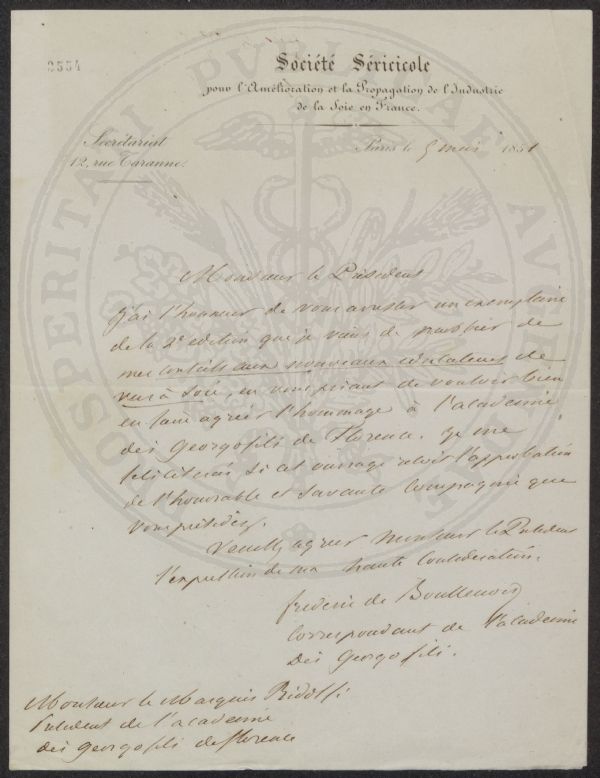 2554
Société Séricicole
pour l'Amélioration et la Propagation de l'Industrie
de la Soie en France.
Secrétariat
12, rue Taranne.
Paris le 5 mai 1851
Monsieur le Président
J'ai l'honneur de vous adresser un exemplaire
de la 2e edition que je viens de publier de
mes Conseils aux nouveaux éducateurs de
vers à soie, en vous priant de vouloir bien
en faire agréer l'hommage à l'academie
des Georgofili de Florence. Je me
feliciterais si cet ouvrage recevoit l'approbation
de l'honorable et savante Compagnie que
vous présidez.
Veuillez agreer Monsieur le President
l'expression de ma haute Consideration.
frederic de Boullenois
Correspondant de l'academie
Des Georgofili.
Monsieur le Marquis Ridolfi
President de l'academie
des georgofili de florence
PROSPERITATI PUBLICAE AUGENDAE